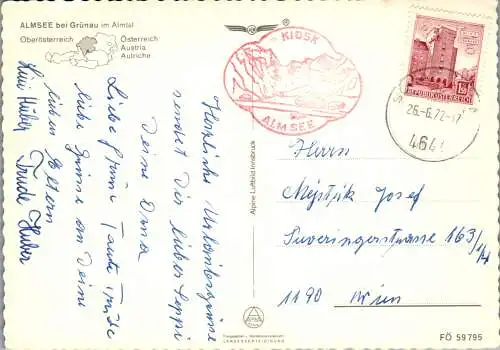 ALMSEE bei Grünau im Almtal
Oberösterreich
Österreich
Austria
Autriche
KIOSK
ALMSEE
REPUBLIK ÖSTERREICH
26.-6.72-17
4644
Herzliche Urlaubsgrüsse
sendet Dir lieber Seppi
Deine Oma
Liebe Grüße Tante Trude
liebe Grüsse an Deine
lieben Eltern
Trude Huber
Huber
Alpine Luftbild Innsbruck
Herrn
Josef
Sieveringerstrasse 163/
1190 Wien
FÖ 59795